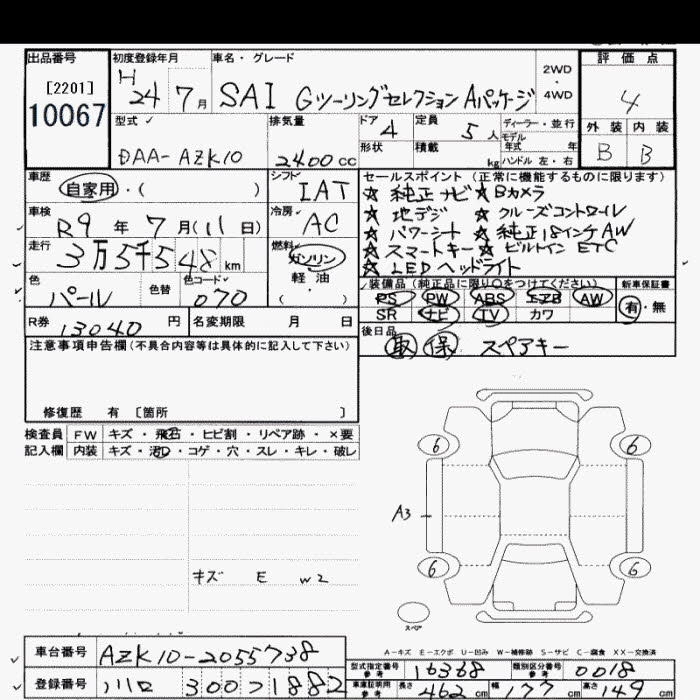 出品番号 初度登録年月 車名・グレード 2WD・4WD 評価点
[2201]
10067
H24 7月 SAI GツーリングセレクションAパッケージ 4
型式 排気量 ドア 4 定員 5人 ディーラー・並行 外装 内装
DAA-AZK10 2400cc 形状 積載 kg モデル年式 年 ハンドル 左・右 B B
車歴 自家用・( ) シフト IAT セールスポイント (正常に機能するものに限ります)
★純正ナビ ★Bカメラ
車検 R9年7月(11日) 冷房 AC
★地デジ ★クルーズコントロール
★パワーシート ★純正18インチAW
走行 3万5千548km 燃料 ガソリン 軽油 ( )
★スマートキー ★ビルトインETC
★LEDヘッドライト
色 パール 色替 色コード 070
装備品 (純正品に限り○をつけてください) 新車保証書
PS PW ABS エアB AW 有・無
SR ナビ TV カワ
R券 13040円 名変期限 月 日
後日品 取 保 スペアキー
注意事項申告欄 (不具合内容等は具体的に記入して下さい)
修復歴 有 [箇所 ]
検査員 FW キズ・飛石・ヒビ割・リペア跡・×要
記入欄 内装 キズ・汚レ・コゲ・穴・スレ・キレ・破レ
6 6
A3
6 6
キズ E W2
スペア
A-キズ E-エクボ U-凹み W-補修跡 S-サビ C-腐食 XX-交換済
車台番号 AZK10-2055738
型式指定番号 参考 16368 類別区分番号 参考 0018
登録番号 川口 300 ワ 1882
車庫証明用 参考 長さ 462cm 幅 177cm 高さ 149cm